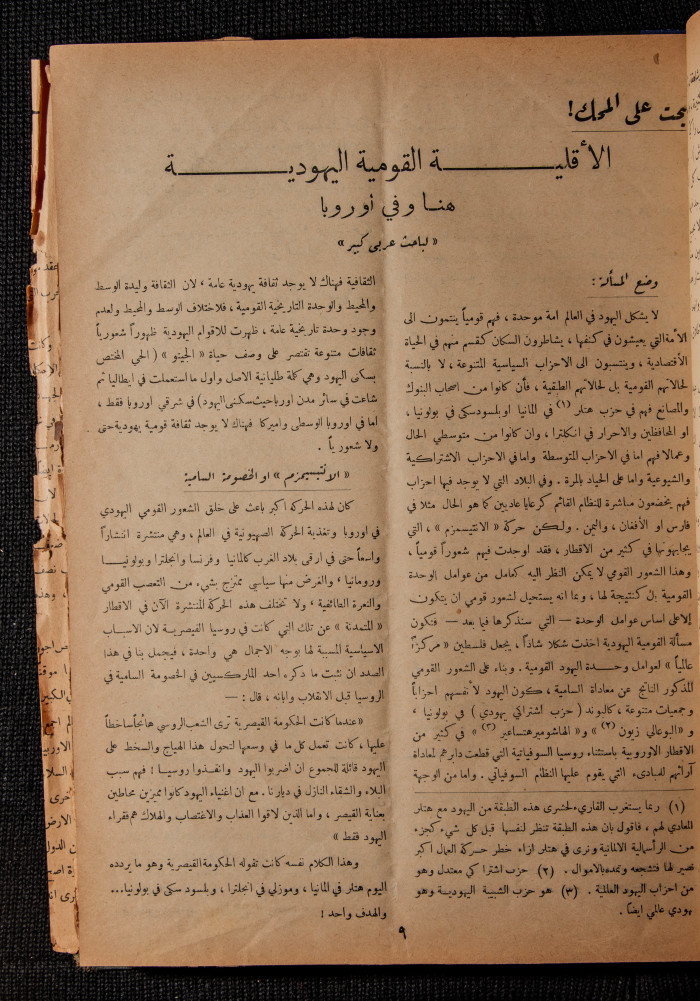 بحث على المحك!
الأقليـة القومية اليهوديـة
هنا وفي أوروبا
«لباحث عربي كبير»
وضع المسألة:
لا يشكل اليهود في العالم امة موحدة، فهم قومياً ينتمون الى
الأمة التي يعيشون في كنفها، يشاطرون السكان كقسم منهم في الحياة
الأقتصادية، وينتسبون الى الاحزاب السياسية المتنوعة، لا بالنسبة
لحالاتهم القومية بل لحالاتهم الطبقية، فأن كانوا من اصحاب البنوك
والمصانع فهم في حزب هتلر (١) في المانيا او بلسودسكي في بولونيا،
او المحافظين والاحرار في انكلترا، وان كانوا من متوسطي الحال
وعمالا فهم اما في الاحزاب المتوسطة واما في الاحزاب الاشتراكية
والشيوعية واما على الحياد بالمرة. وفي البلاد التي لا يوجد فيها احزاب
فهم يخضعون مباشرة للنظام القائم كرعايا عاديين كما هو الحال مثلا في
فارس او الأفغان، واليمن. ولـكن حركة «الانتيسمزم»، التي
يجابهونها في كثير من الاقطار، فقد اوجدت فيهم شعوراً قومياً،
وهذا الشعور القومي لا يمكن النظر اليه كعامل من عوامل الوحدة
القومية بل كنتيجة لها، وبما انه يستحيل لشعور قومي ان يتكون
إلا على اساس عوامل الوحدة — التي سنذكرها فيما بعد — فتكون
مسألة القومية اليهودية اخذت شكلا شاذاً، يجعل فلسطين «مركزاً
عالمياً» لعوامل وحـدة اليهود القومية. وبناء على الشعور القومي
المذكور الناتج عن معاداة السامية، كون اليهود لأنفسهم احزاباً
وجمعيات متنوعة، كالبوند (حزب أشتراكي يهودي) في بولونيا،
و«البوعالي زيون (٢)» و«الهاشوميرهتساعير (٣)» في كثير من
الاقطار الاوروبية باستثناء روسيا السوفياتية التي قطعت دابرهم لمعاداة
آرائهم لمبادىء التي يقوم عليها النظام السوفياتي. واما من الوجهة
(١) ربما يستغرب القارىء لحشرى هذه الطبقة من اليهود مع هتلر
المعادي لهم، فاقول بان هذه الطبقة تنظر لنفسها قبل كل شيء كجزء
من الرأسمالية الالمانية وترى في هتلر ازاء خطر حركة العمال اكبر
نصير لها فتشجعه وتمده بالاموال. (٢) حزب اشتراكي معتدل وهو
من احزاب اليهود العالمية. (٣) هو حزب الشبيبة اليهودية وهو
يهودي عالمي ايضاً.
الثقافية فهناك لا يوجد ثقافة يهودية عامة، لان الثقافة وليدة الوسط
والمحيط والوحدة التاريخية القومية، فلاختلاف الوسط والمحيط ولعدم
وجود وحدة تاريخية عامة، ظهرت للاقوام اليهودية ظهوراً شعورياً
ثقافات متنوعة تقتصر على وصف حياة «الجيتو» (الحي المختص
بسكنى اليهود وهي كلمة طليانية الاصل واول ما استعملت في ايطاليا ثم
شاعت في سائر مدن اوربا حيث سكنى اليهود) في شرقي اوروبا فقط،
اما في اوروبا الوسطى واميركا فهناك لا يوجد ثقافة قومية يهودية حتى
ولا شعورياً.
«الانتيسيمزم» او الخصومة السامية
كان لهذه الحركة اكبر باعث على خلق الشعور القومي اليهودي
في اوروبا وتغذية الحركة الصهيونية في العالم، وهي منتشرة انتشاراً
واسعاً حتى في ارقى بلاد الغرب كالمانيا وفرنسا وانجلترا وبولونيا
ورومانيا، والغرض منها سياسي ممتزج بشيء من التعصب القومي
والنعرة الطائفية، ولا تختلف هذه الحركة المنتشرة الآن في الاقطار
«المتمدنة» عن تلك التي كانت في روسيا القيصرية لان الاسباب
الاسياسية المسببة لها بوجه الاجمال هي واحدة، فيجمل بنا في هذا
الصدد ان نثبت ما ذكره احد الماركسيين في الخصومة السامية في
الروسيا قبل الانقلاب وابانه، قال: —
«عندما كانت الحكومة القيصرية ترى الشعب الروسي هائجاً ساخطاً
عليها، كانت تعمل كل ما في وسعها لتحول هذا الهياج والسخط على
اليهود قائلة للجموع ان اضربوا اليهود وانقذوا روسيا! فهم سبب
البلاء والشقاء النازل في ديارنا. مع ان اغنياء اليهود كانوا مميزين محاطين
بعناية القيصر، واما الذين لاقوا العذاب والاغتصاب والهلاك هم فقراء
اليهود فقط»
وهذا الكلام نفسه كانت تقوله الحكومة القيصرية وهو ما يردده
اليوم هتلر في المانيا، وموزلي في انجلترا، وبلسودسكي في بولونيا...
والهدف واحد!
٩